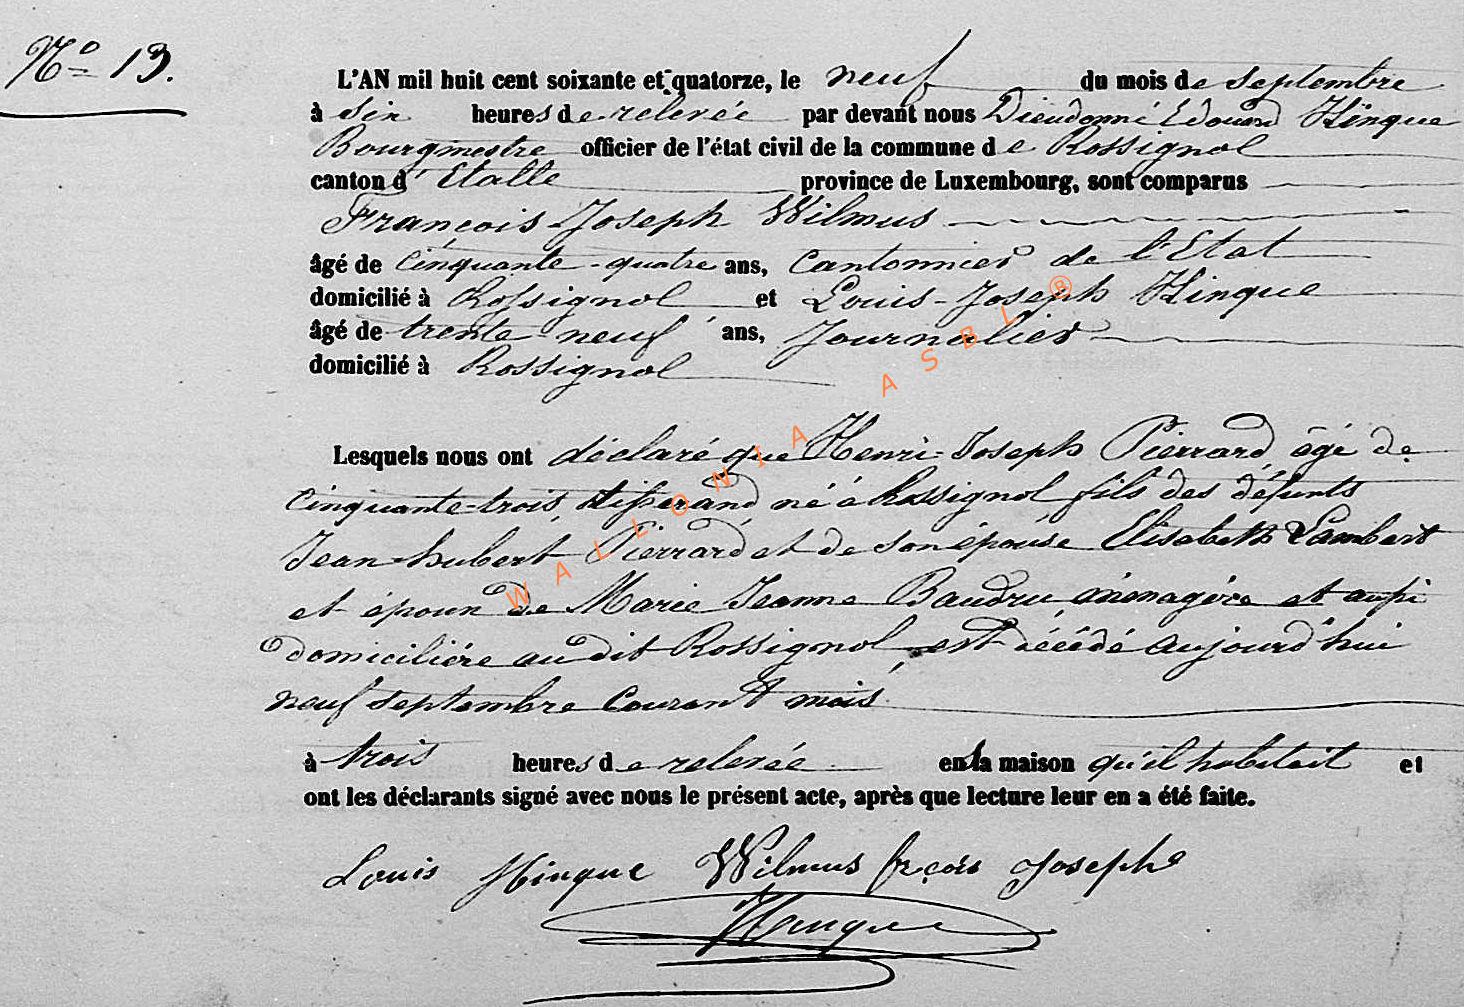 N° 13.
L'AN mil huit cent soixante et quatorze, le neuf du mois de septembre
à six heures de relevée par devant nous Dieudonné Edouard Hinque
Bourgmestre officier de l'état civil de la commune de Rossignol
canton d'Etalle province de Luxembourg, sont comparus
François-Joseph Wilmus
âgé de cinquante-quatre ans, Cantonnier de l'Etat
domicilié à Rossignol et Louis-Joseph Hinque
âgé de trente-neuf ans, Journalier
domicilié à Rossignol
Lesquels nous ont déclaré que Henri-Joseph Pierrard âgé de
cinquante-trois, tisserand né à Rossignol fils des défunts
Jean-hubert Pierrard et de son épouse Elisabeth Lambert
et époux de Marie Jeanne Baudru, ménagère et aussi
domiciliére au dit Rossignol, est décédé aujourd'hui
neuf septembre courant mois
à trois heures de relevée en la maison qu'il habitait et
ont les déclarants signé avec nous le présent acte, après que lecture leur en a été faite.
Louis Hinque Wilmus frçois Joseph
Hinque
WALLONIA ASBL ®